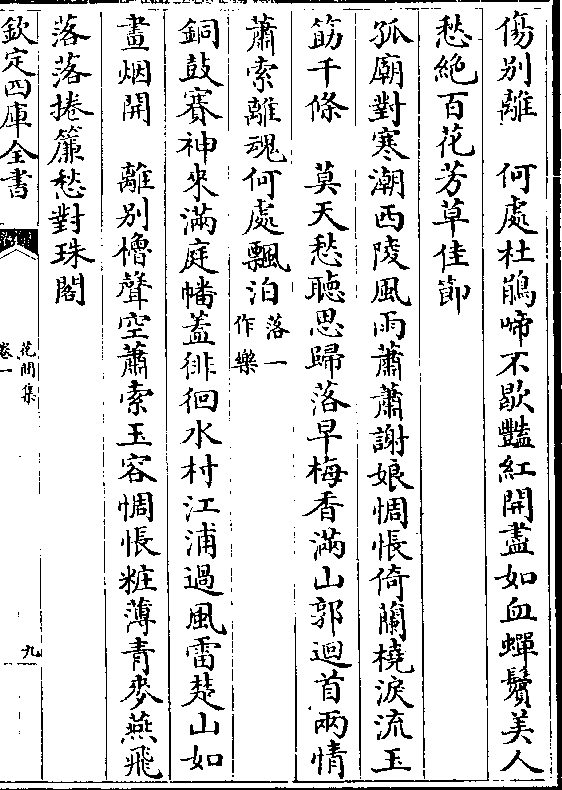 傷别離　何處杜鵑啼不歇豔紅開盡如血蟬鬢美人
愁絶百花芳草佳節
孤廟對寒潮西陵風雨蕭蕭謝娘惆悵倚蘭橈淚流玉
筯千條　莫天愁聽思歸落早梅香滿山郭迴首兩情
蕭索離魂何處飄泊落一作樂
銅鼓賽神來滿庭幡蓋徘徊水村江浦過風雷楚山如
畫烟開　離别櫓聲空蕭索玉容惆悵粧薄青麥燕飛
落落捲簾愁對珠閣
欽定四庫全書
花間集
卷一
九